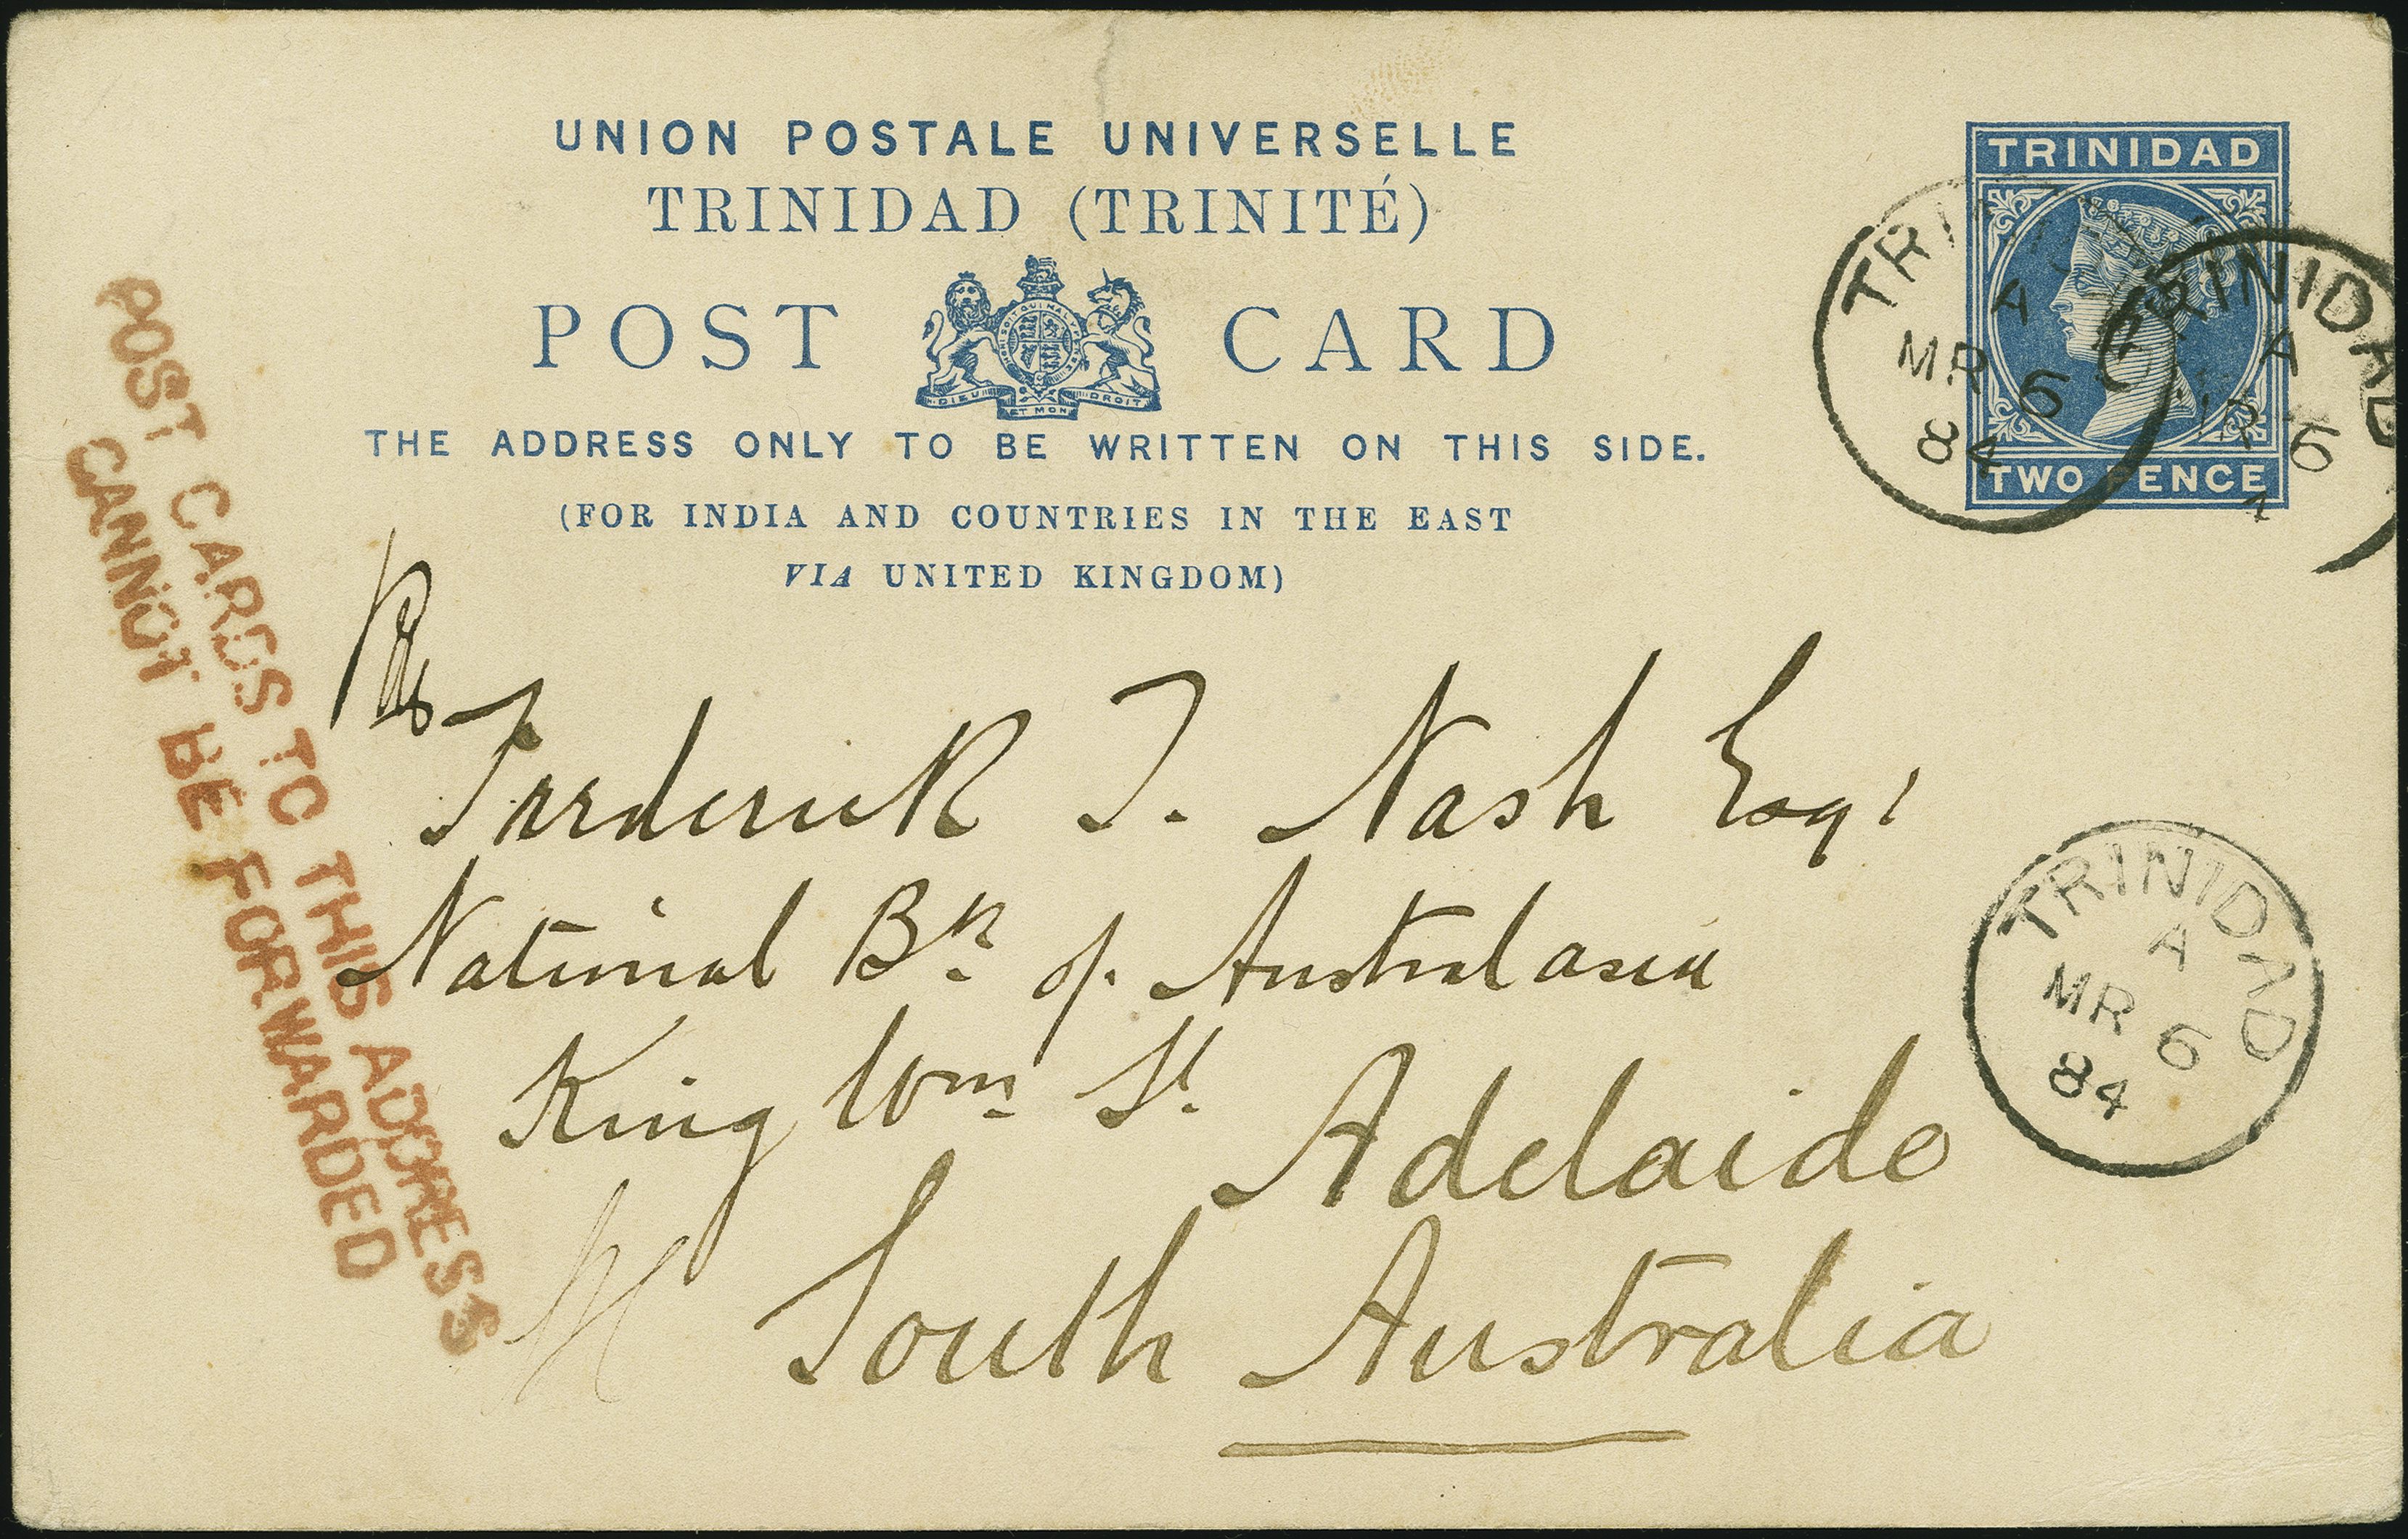 UNION POSTALE UNIVERSELLE
TRINIDAD (TRINITÉ)
POST CARD
DIEU ET MON DROIT
THE ADDRESS ONLY TO BE WRITTEN ON THIS SIDE.
(FOR INDIA AND COUNTRIES IN THE EAST
VIA UNITED KINGDOM)
TRINIDAD
TWO PENCE
TRINIDAD
A
MR 6
84
TRINIDAD
A
MR 6
POST CARDS TO THIS ADDRESS
CANNOT BE FORWARDED
Frederick T. Nash Esq
National Bk of Australasia
King Wm St
Adelaide
South Australia
TRINIDAD
A
MR 6
84